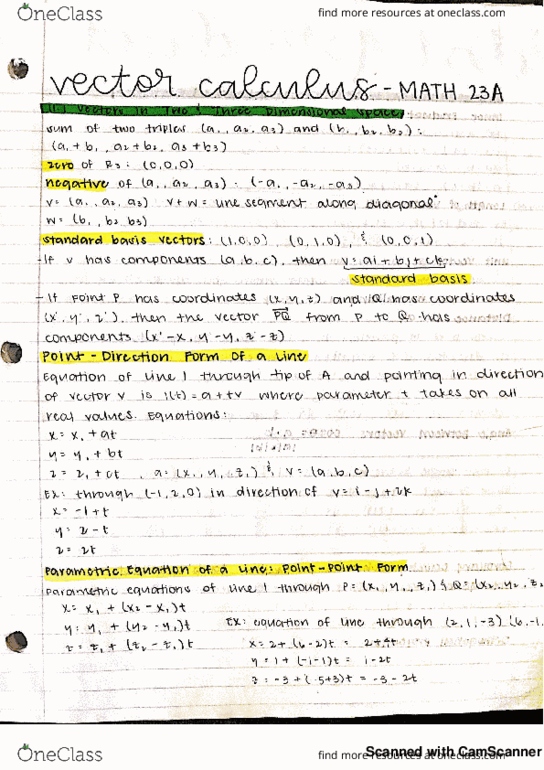 OneClass
find more resources at oneclass.com
vector calculus - MATH 23A
1.1 Vectors in Two & Three Dimensional Space
sum of two triples (a₁, a₂, a₃) and (b₁, b₂, b₃):
(a₁+b₁, a₂+b₂, a₃+b₃)
zero of R₃: (0,0,0)
negative of (a₁, a₂, a₃) : (-a₁, -a₂, -a₃)
v= (a₁, a₂, a₃) v+w = line segment along diagonal
w= (b₁, b₂, b₃)
standard basis vectors: (1,0,0), (0,1,0) & (0,0,1)
-If v has components (a,b,c), then v=ai+bj+ck
standard basis
- If point P has coordinates (x,y,z) and Q has coordinates
(x',y',z'), then the vector PQ from P to Q has
components (x'-x, y'-y, z'-z)
Point-Direction Form of a Line
Equation of line l through tip of A and pointing in direction
of vector v is l(t)=a+tv where parameter t takes on all
real values. Equations:
x= x₁+at
y= y₁+bt
z= z₁+ct , a=(x₁,y₁,z₁) & v=(a,b,c)
Ex: through (-1,2,0) in direction of v=i-j+2k
x= -1+t
y= 2-t
z= 2t
Parametric Equation of a Line: Point-Point Form
Parametric equations of line l through P=(x₁,y₁,z₁) & Q=(x₂,y₂,z₂
x= x₁+(x₂-x₁)t
y= y₁+(y₂-y₁)t Ex: equation of line through (2,1,-3) (6,-1,
z= z₁+(z₂-z₁)t x=2+(6-2)t = 2+4t
y=1+(-1-1)t = 1-2t
z=-3+(-5+3)t = -3-2t
OneClass
find more resources at oneclass.com
Scanned with CamScanner